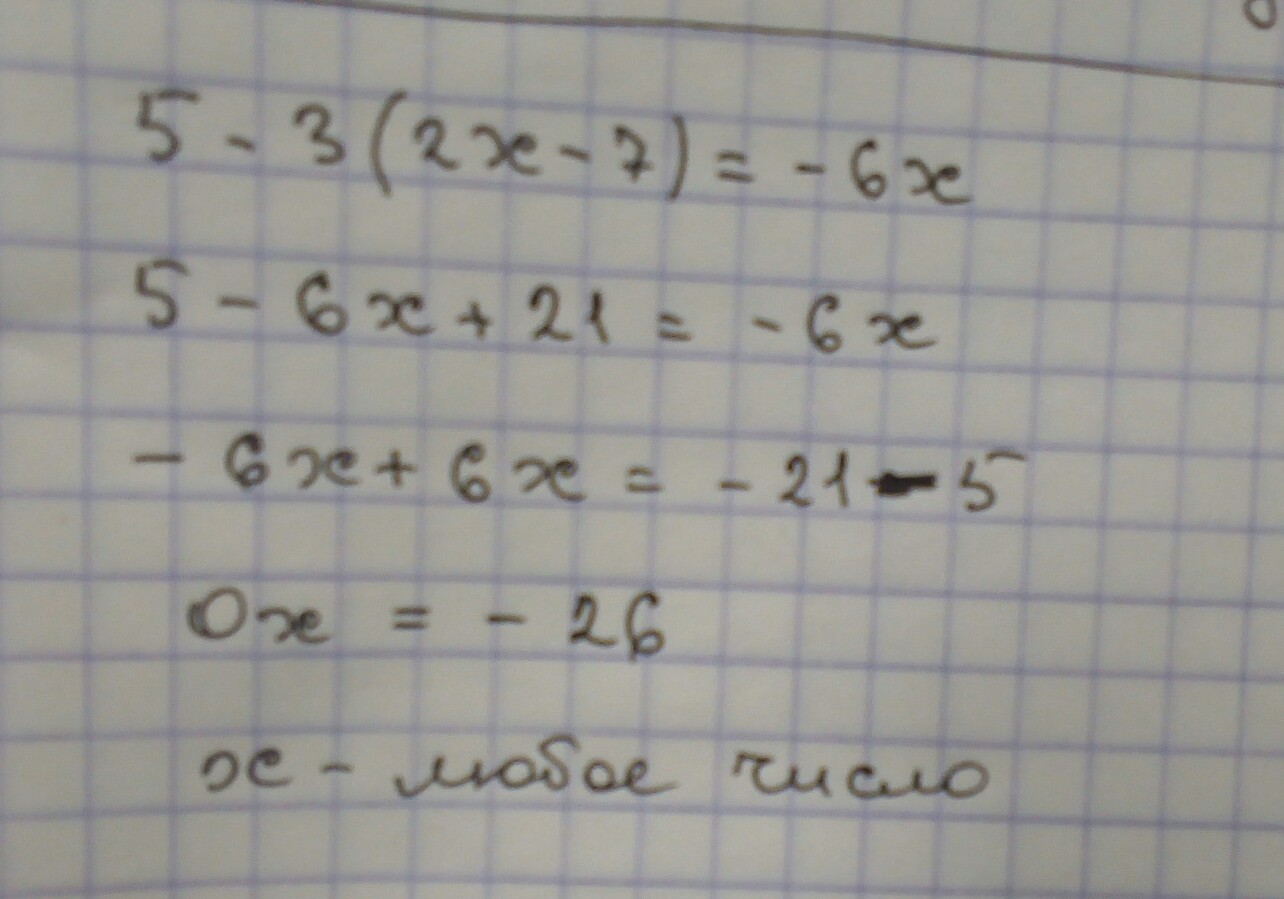 5 - 3(2x - 7) = - 6x
5 - 6x + 21 = - 6x
- 6x + 6x = - 21 - 5
0x = - 26
x - любое число